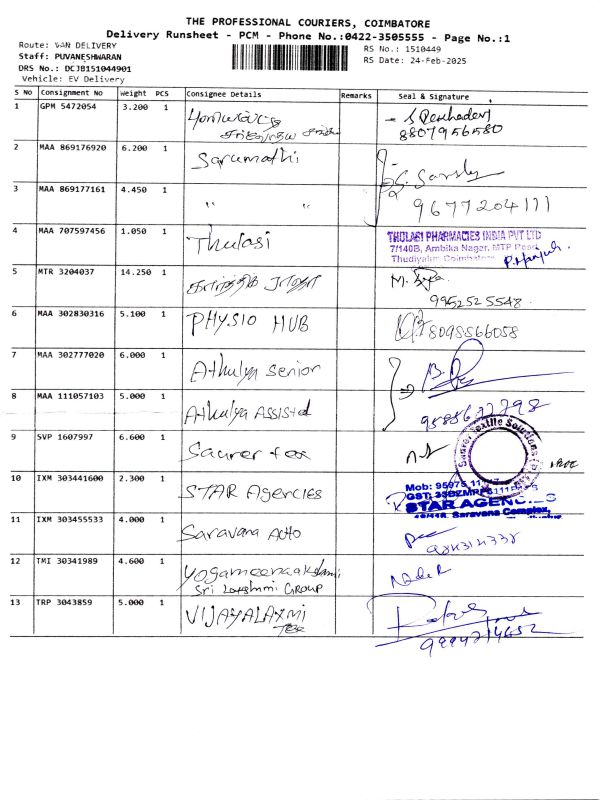 THE PROFESSIONAL COURIERS, COIMBATORE
Delivery Runsheet - PCM - Phone No.:0422-3505555 - Page No.:1
Route: VAN DELIVERY
Staff: PUVANESHWARAN
DRS No.: DCJB151044901
Vehicle: EV Delivery
RS No.: 1510449
RS Date: 24-Feb-2025
S NO Consignment No Weight PCS Consignee Details Remarks Seal & Signature
1 GPM 5472054 3.200 1
8807956580
2 MAA 869176920 6.200 1 Sarumathi
3 MAA 869177161 4.450 1 " " 9677204111
4 MAA 707597456 1.050 1 Thulasi
THULASI PHARMACIES INDIA PVT LTD
7/140B, Ambika Nagar, MTP Road,
Thudiyalur Coimbatore
5 MTR 3204037 14.250 1
9952525548
6 MAA 302830316 5.100 1 PHYSIO HUB 8098566058
7 MAA 302777020 6.000 1 Athulya Senior
8 MAA 111057103 5.000 1 Athulya Assisted
9 SVP 1607997 6.600 1 Saurer tex
Saurer Textile Solutions
10 IXM 303441600 2.300 1 STAR Agencies
STAR AGENCIES
Saravana Complex,
11 IXM 303455533 4.000 1 Saravana Auto
12 TMI 30341989 4.600 1 Yogameenaakshmi
Sri Lakshmi GROUP
13 TRP 3043859 5.000 1 VIJAYALAXMI
TEX
9994214652